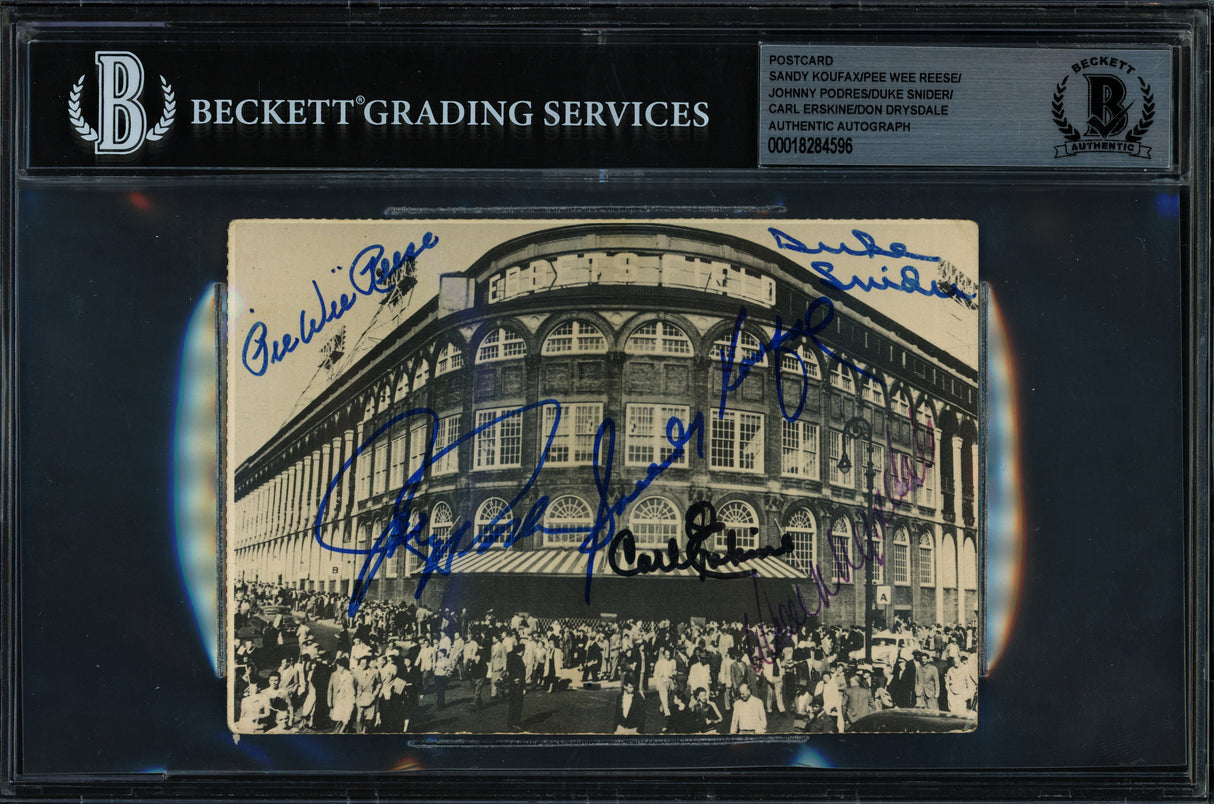 B
BECKETT® GRADING SERVICES
POSTCARD
SANDY KOUFAX/PEE WEE REESE/
JOHNNY PODRES/DUKE SNIDER/
CARL ERSKINE/DON DRYSDALE
AUTHENTIC AUTOGRAPH
00018284596
BECKETT
B
AUTHENTIC
Pee Wee Reese
Duke
Snider
EBBETS FIELD
Koufax
Carl Erskine
B
A